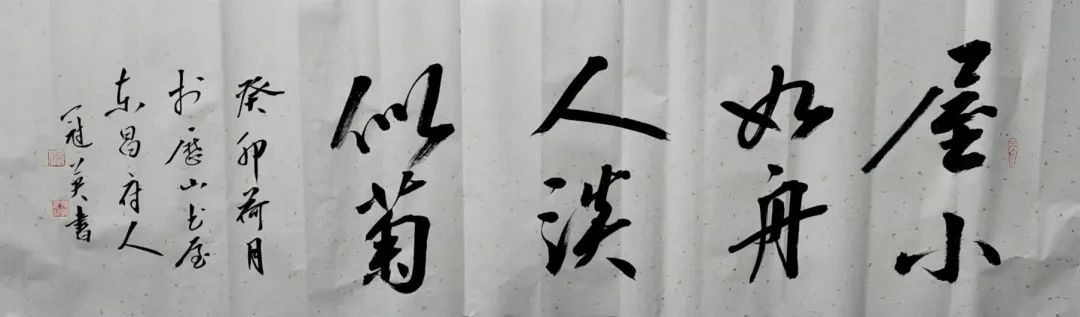 屋小
如舟
人淡
似菊
癸卯荷月
于历山书屋
东昌府人
冠英书